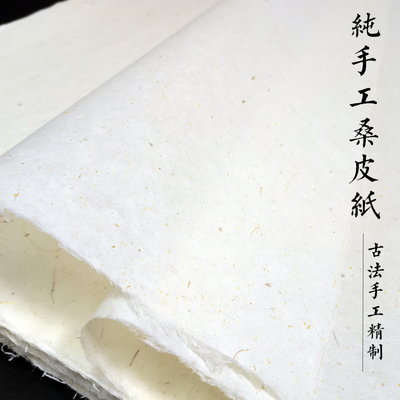 純手工桑皮紙
古法手工精制